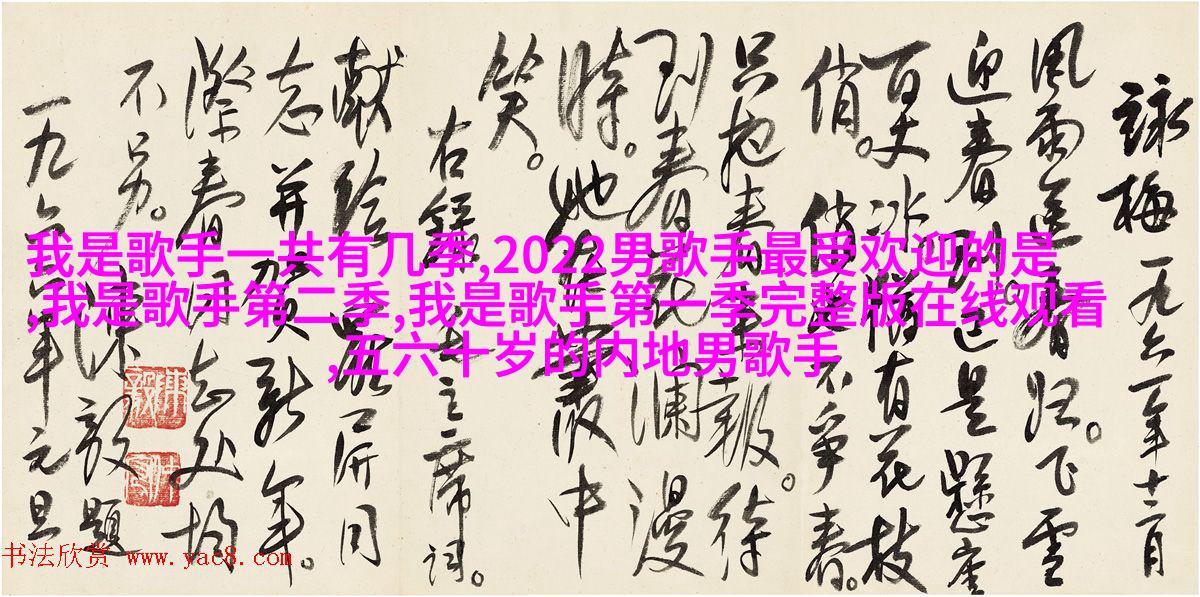 詠梅 一九六一年十二月
風雨送春归。飞雪
迎春到已是懸崖
百丈冰猶有花枝
俏。俏也不争春。
只把春来報。待
到春花爛漫
時。她在叢中
笑。
右錄毛主席词
献给同
志并贺新年。
際春同志处均
不另。陈毅题
一九六年元旦
我是歌手一共有几季,2022男歌手最受欢迎的是
,我是歌手第二季,我是歌手第一季完整版在线观看
,五六十岁的内地男歌手
书法欣赏 www.yac8.com